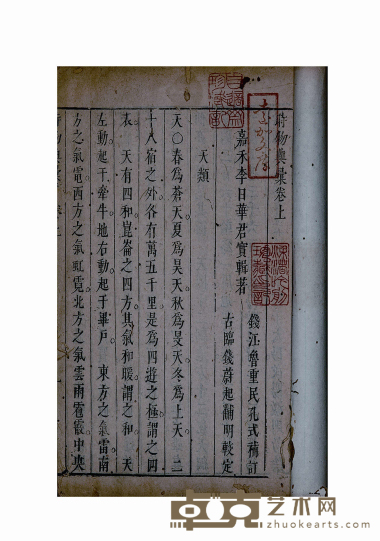 時物典彙卷上
嘉禾李日華君實輯著
錢江魯重民孔式補訂
古臨錢蔚起黼明較定
天類
天〇春爲蒼天夏爲昊天秋爲旻天冬爲上天 二
十八宿之外各有萬五千里是爲四遊之極謂之四
表 天有四和崑崙之四方其氣和暖謂之和 天
左動起于牽牛地右動起于畢戶 東方之氣雷南
方之氣電西方之氣虹霓北方之氣雲雨雹霰中央
卓克艺术网
www.zhuokearts.com